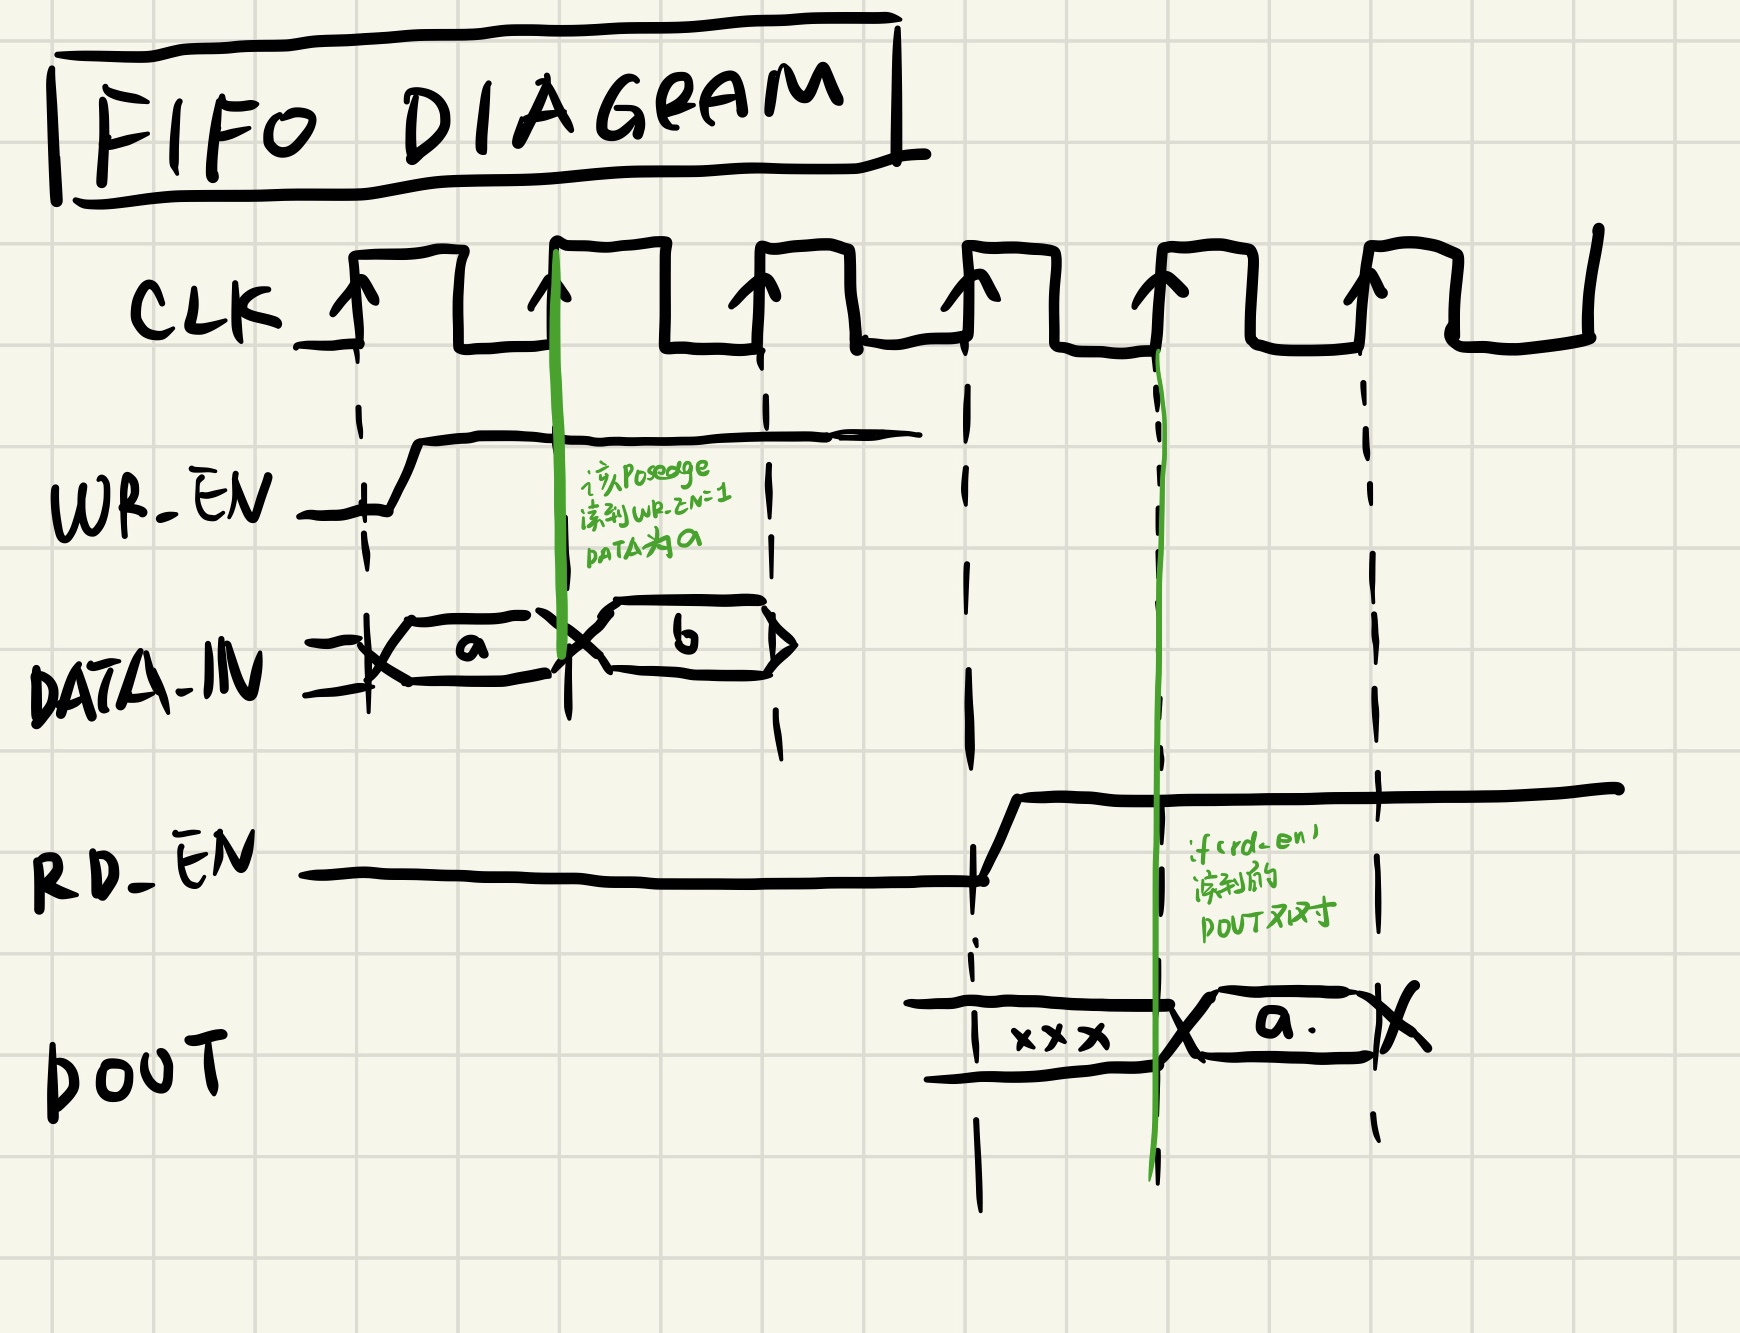 FIFO DIAGRAM
CLK
WR_EN
该Posedge
读到WR_EN=1
DATA为a
DATA_IN
a
b
RD_EN
if(rd_en)
读到的
DOUT
DOUT
xxx
a.